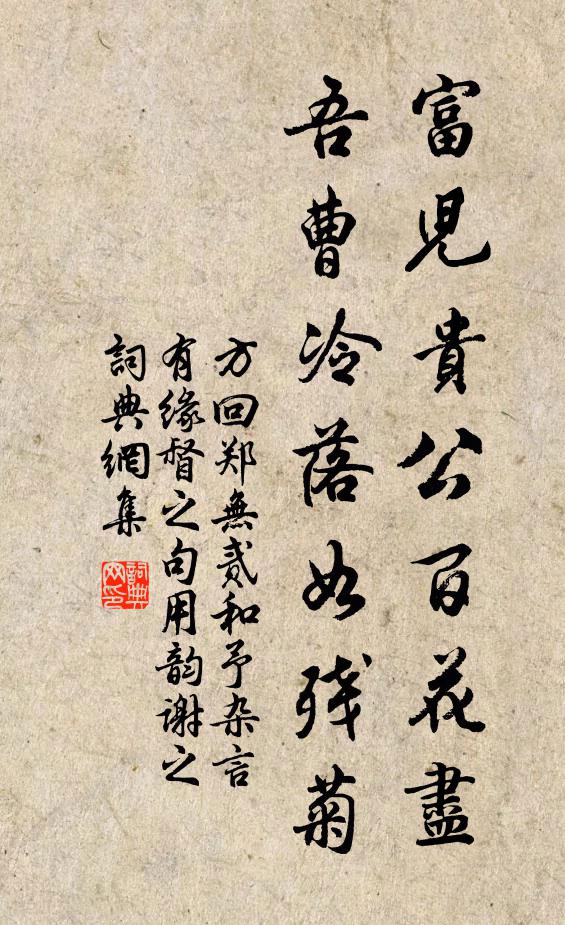 富児貴公百花盡
吾曹冷落如残菊
方回郑無貳和予杂言
有緣督之句用韵谢之
詞典網集
詞典
网印